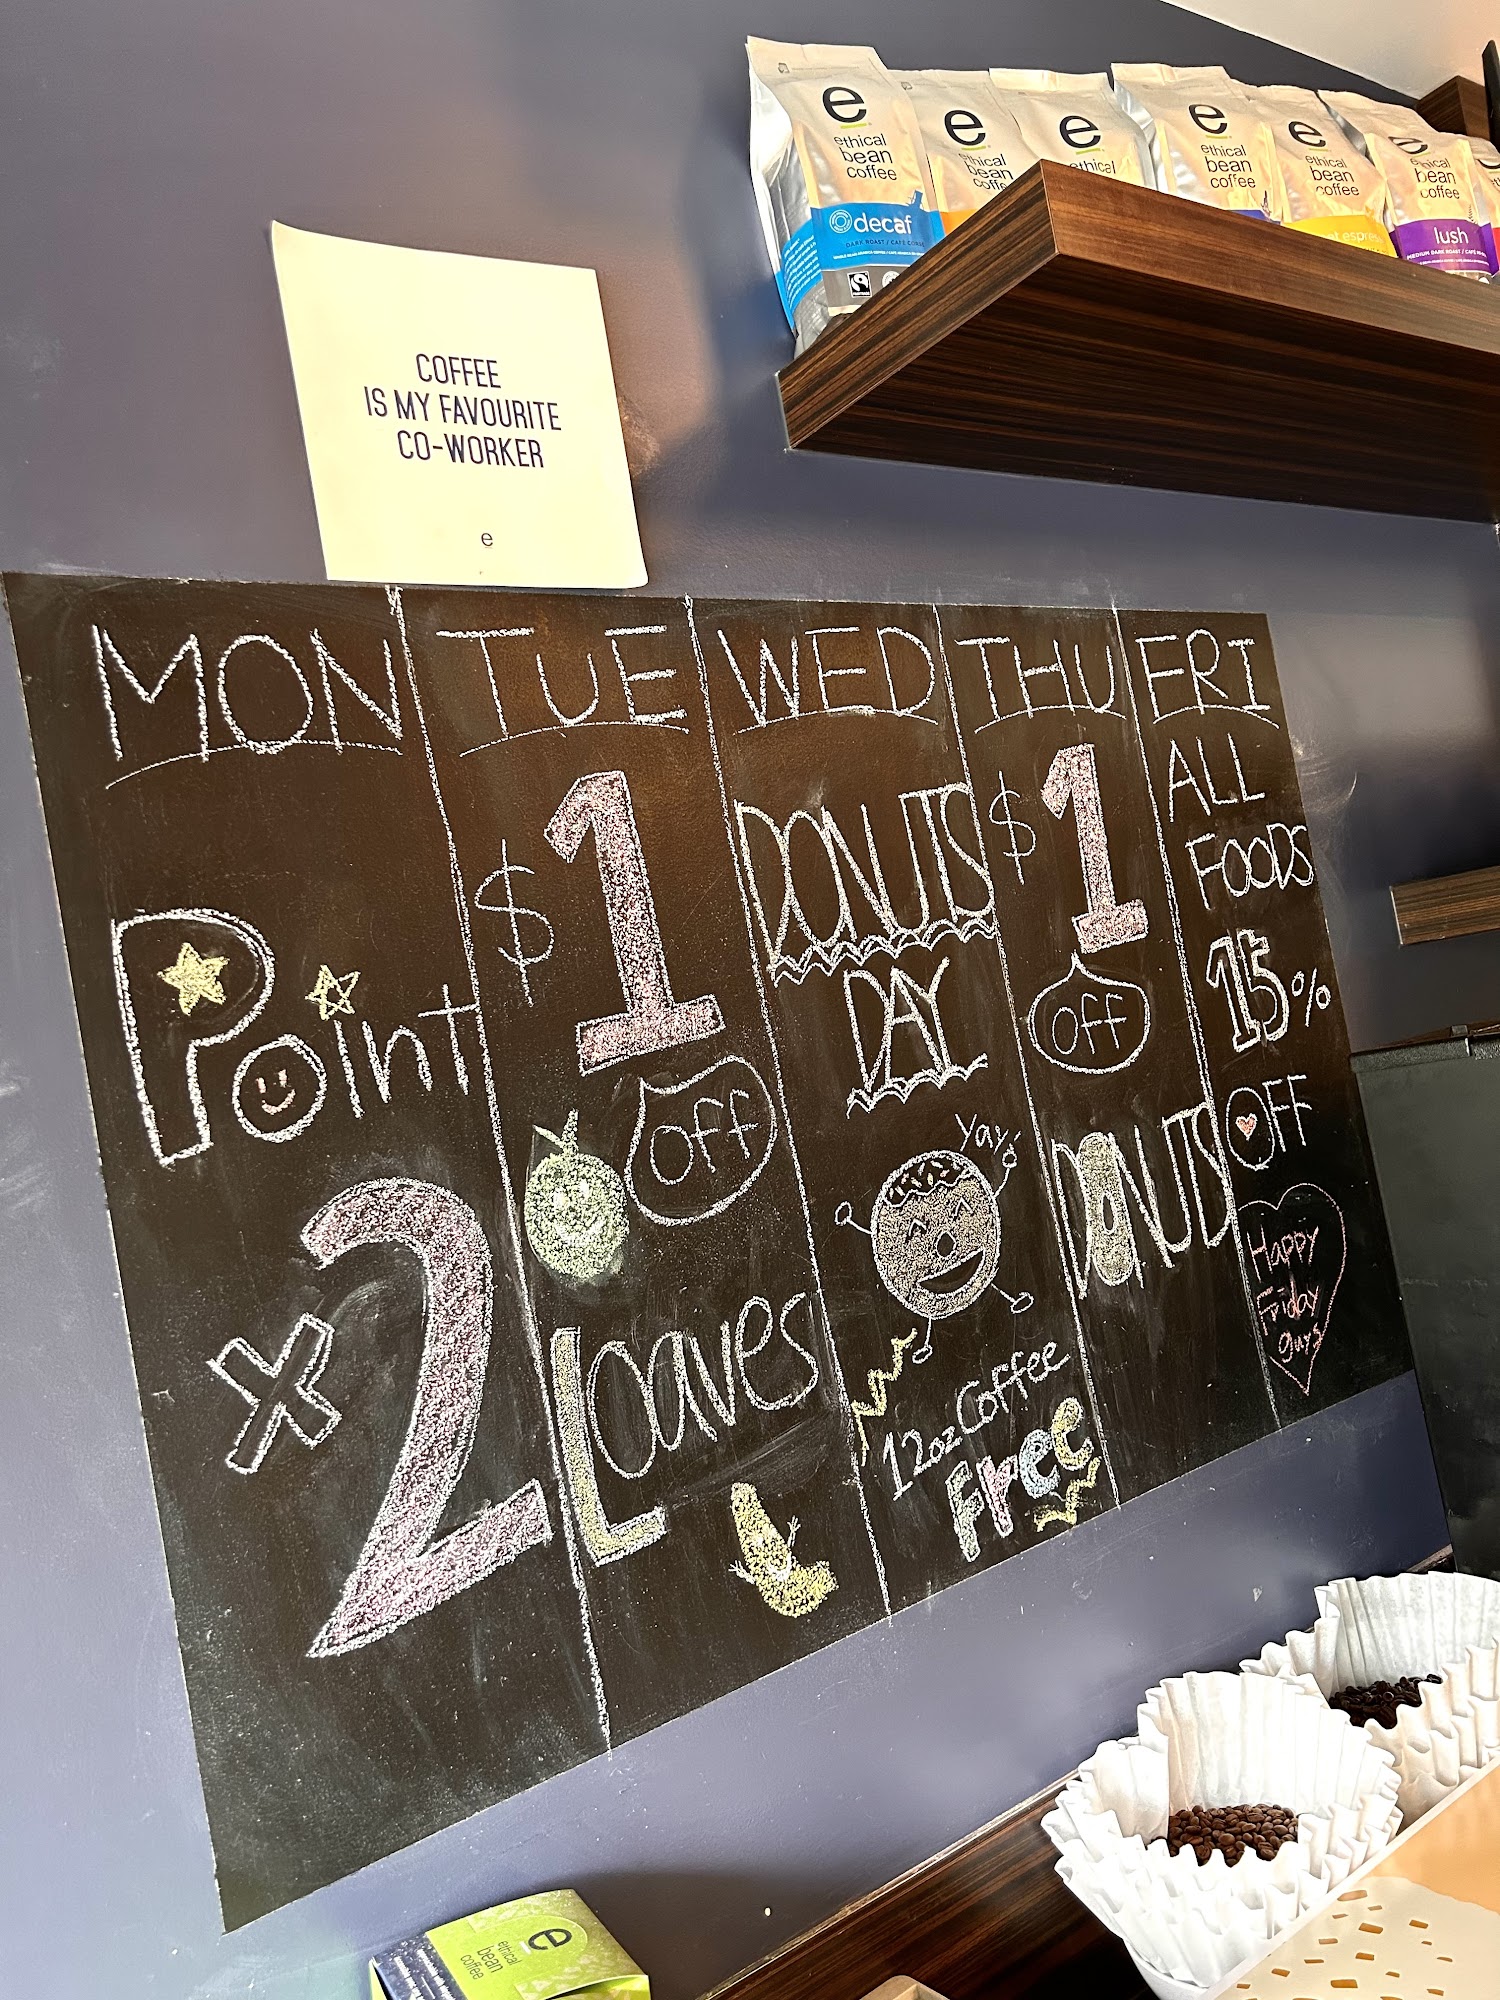 e
ethical
bean
coffee
decaf
DARK ROAST / CAFÉ CORSÉ
e
ethical
bean
e
ethical
e
ethical
bean
coffee
e
ethical
bean
coffee
e
ethical
bean
coffee
lush
MEDIUM DARK ROAST
COFFEE
IS MY FAVOURITE
CO-WORKER
e
MON
Point
x2
TUE
$1
off
Loaves
WED
DONUTS
DAY
Yay!
12oz Coffee
Free
THU
$1
off
DONUTS
FRI
ALL
FOODS
15%
OFF
Happy
Friday
guys
e
ethical
bean
coffee